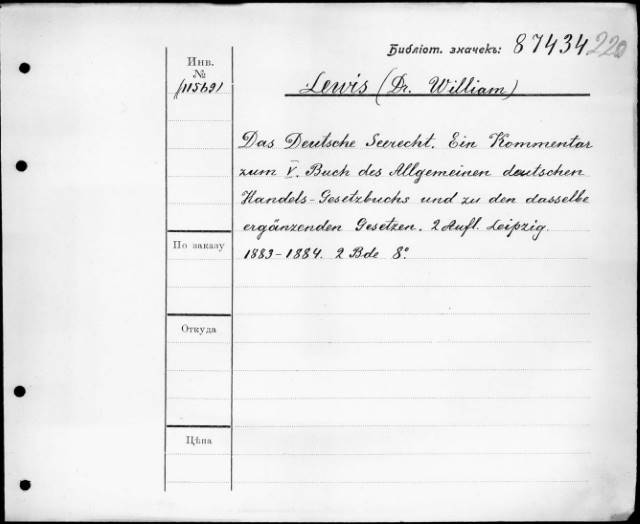 Библіот. значекъ: 87434 220
Инв.
№
(11569)
Lewis (Dr. William)
Das Deutsche Seerecht. Ein Kommentar
zum V. Buch des Allgemeinen deutschen
Handels-Gesetzbuchs und zu den dasselbe
ergänzenden Gesetzen. 2 Aufl. Leipzig.
1883-1884. 2 Bde 8°.
По заказу
Откуда
Цѣна